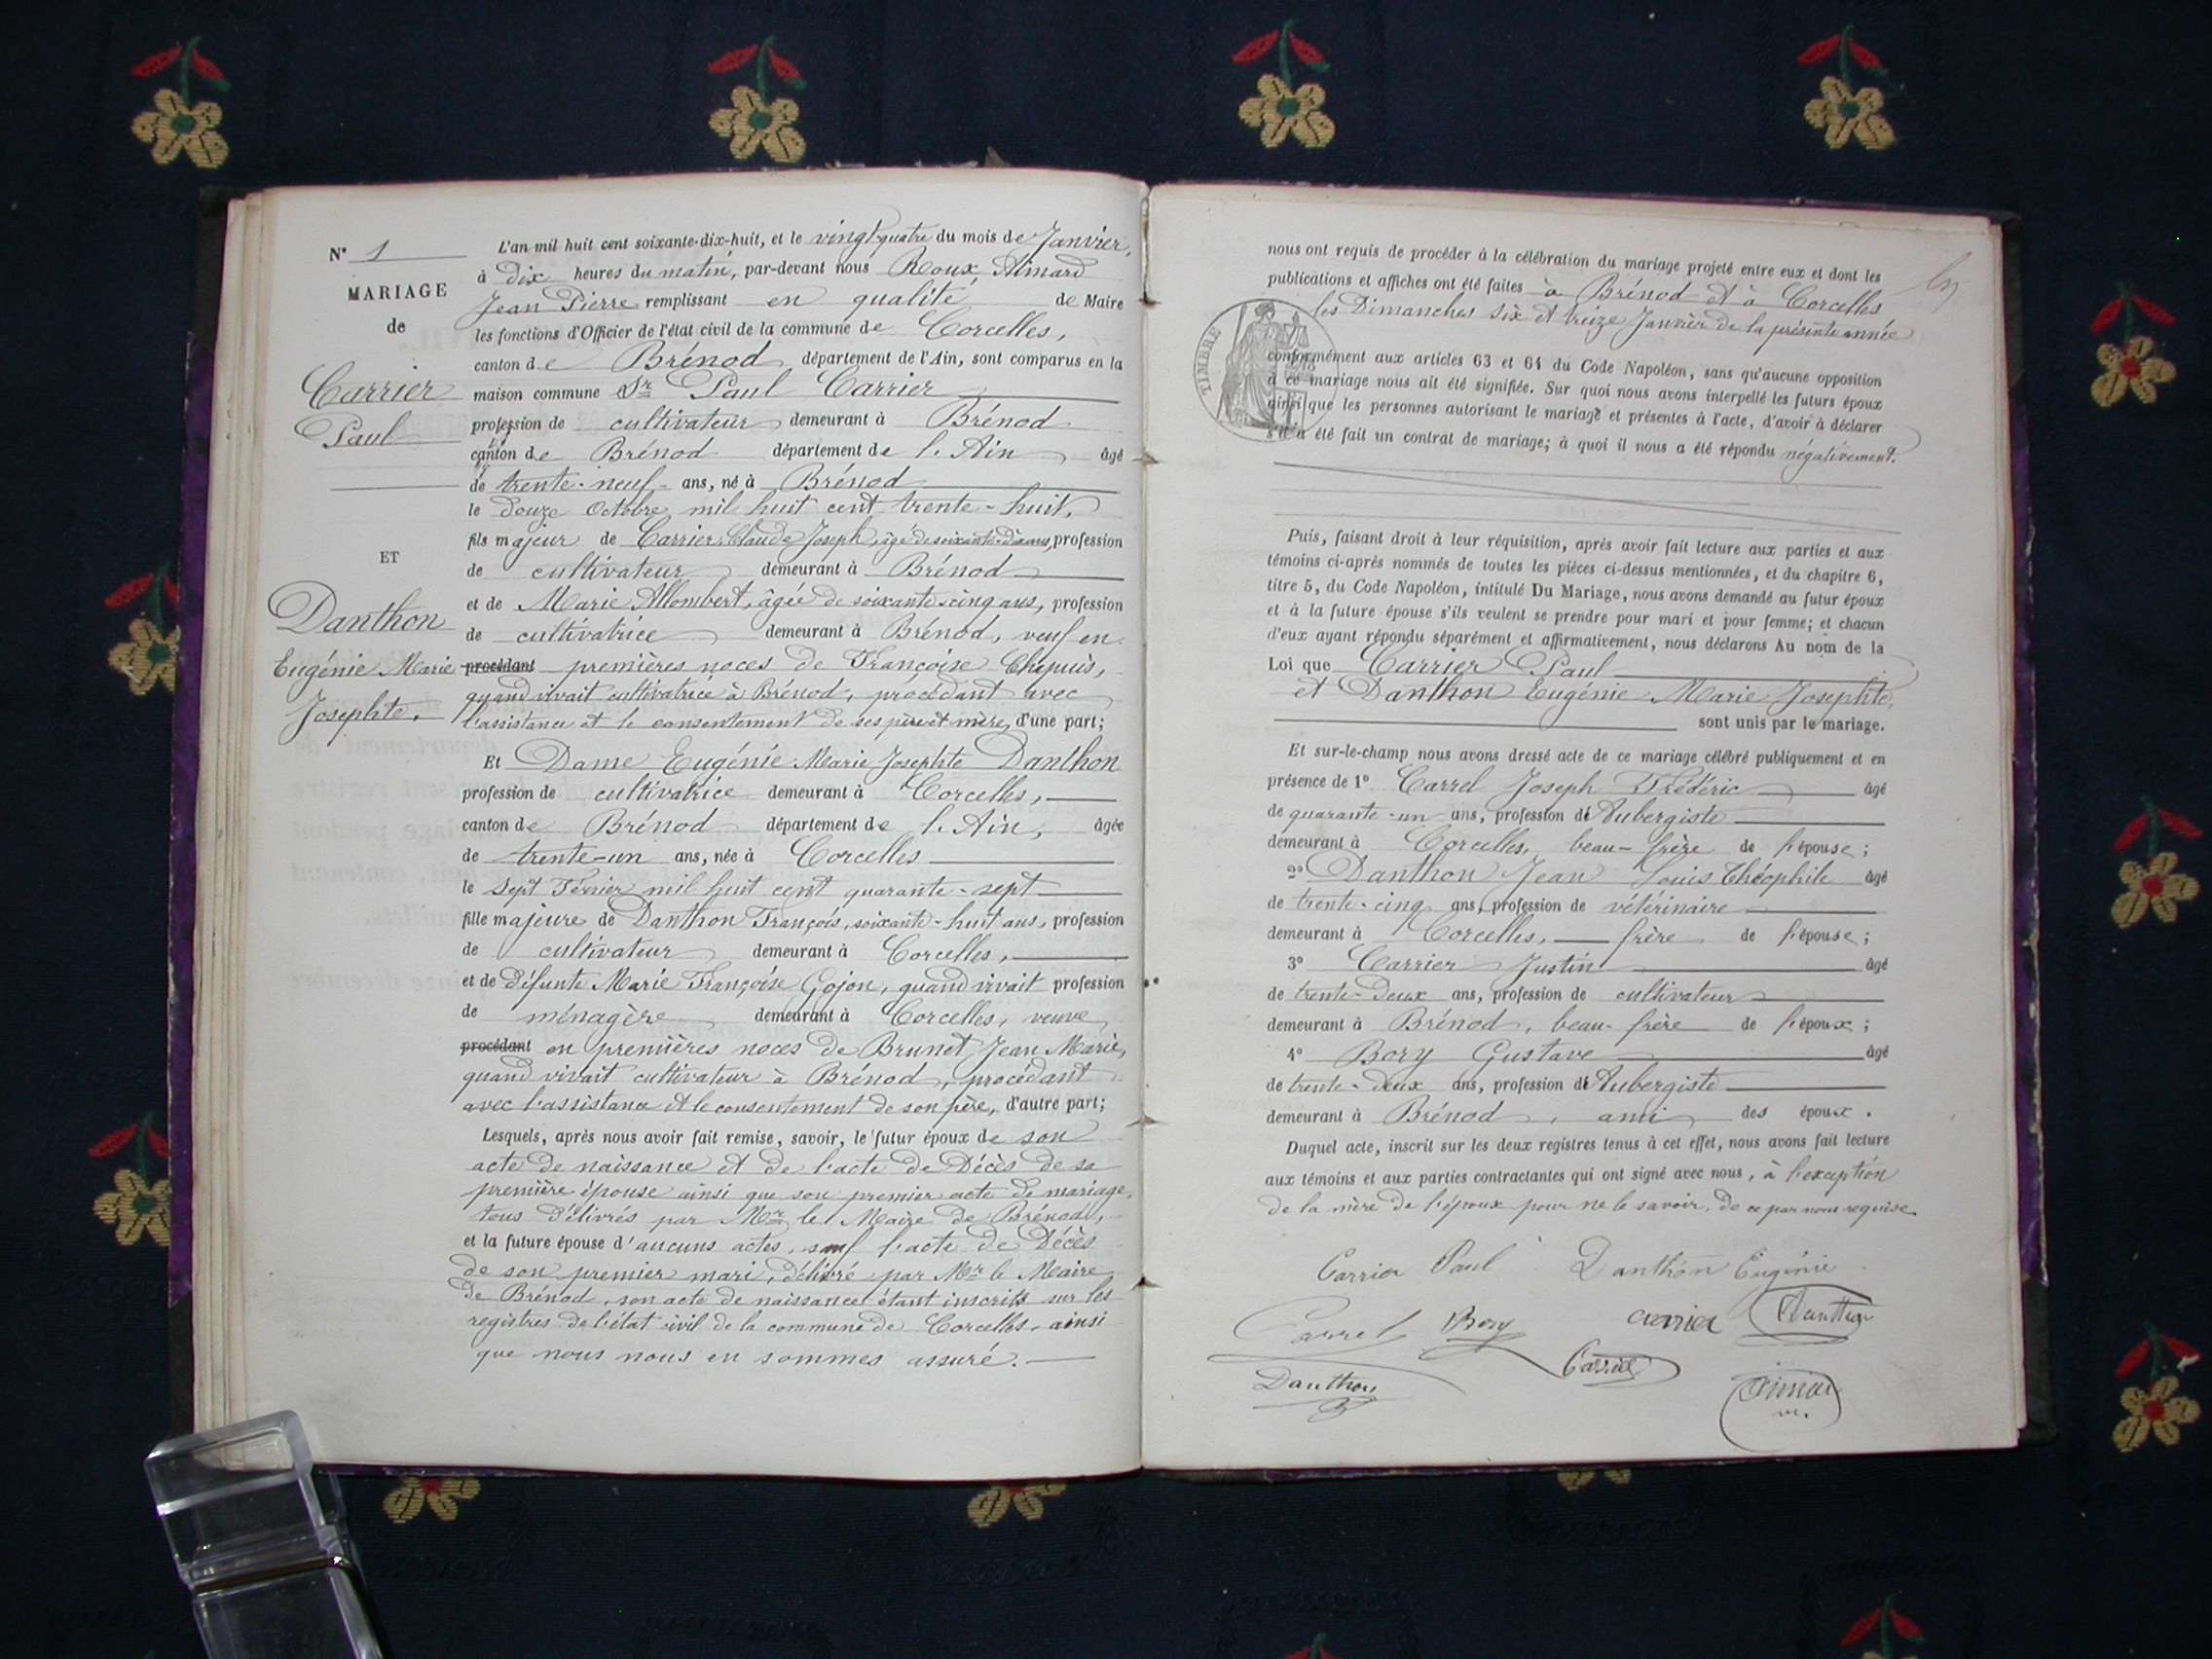 N° 1
MARIAGE
de
Carrier
Paul
ET
Danthon
Eugénie Marie
Josephte.
L'an mil huit cent soixante-dix-huit, et le vingt quatre du mois de Janvier,
à dix heures du matin, par-devant nous Roux Aimard
Jean Pierre remplissant en qualité de Maire
les fonctions d'Officier de l'état civil de la commune de Corcelles,
canton de Brénod département de l'Ain, sont comparus en la
maison commune Sr Paul Carrier
profession de cultivateur demeurant à Brénod
canton de Brénod département de l'Ain âgé
de trente-neuf ans, né à Brénod
le douze Octobre mil huit cent trente-huit,
fils majeur de Carrier Claude Joseph, âgé de soixante-dix ans, profession
de cultivateur demeurant à Brénod
et de Marie Allombert, âgée de soixante-cinq ans, profession
de cultivatrice demeurant à Brénod, veuf en
procédant premières noces de Françoise Chapuis,
quand vivait cultivatrice à Brénod, procédant avec
l'assistance et le consentement de ses père et mère, d'une part;
Et Dame Eugénie Marie Josephte Danthon
profession de cultivatrice demeurant à Corcelles,
canton de Brénod département de l'Ain, âgée
de trente-un ans, née à Corcelles
le sept Février mil huit cent quarante-sept
fille majeure de Danthon François, soixante-huit ans, profession
de cultivateur demeurant à Corcelles,
et de défunte Marie Françoise Gojon, quand vivait profession
de ménagère demeurant à Corcelles, veuve
procédant en premières noces de Brunet Jean Marie,
quand vivait cultivateur à Brénod, procédant
avec l'assistance et le consentement de son père, d'autre part;
Lesquels, après nous avoir fait remise, savoir, le futur époux de son
acte de naissance et de l'acte de Décès de sa
première épouse ainsi que son premier acte de mariage,
tous délivrés par Mr le Maire de Brénod,
et la future épouse d'aucuns actes, sauf l'acte de Décès
de son premier mari, délivré par Mr le Maire
de Brénod, son acte de naissance étant inscrit sur les
registres de l'état civil de la commune de Corcelles, ainsi
que nous nous en sommes assuré.
nous ont requis de procéder à la célébration du mariage projeté entre eux et dont les
publications et affiches ont été faites à Brénod et à Corcelles
les Dimanches six et treize Janvier de la présente année
TIMBRE
conformément aux articles 63 et 64 du Code Napoléon, sans qu'aucune opposition
à ce mariage nous ait été signifiée. Sur quoi nous avons interpellé les futurs époux
ainsi que les personnes autorisant le mariage et présentes à l'acte, d'avoir à déclarer
s'il a été fait un contrat de mariage; à quoi il nous a été répondu négativement.
Puis, faisant droit à leur réquisition, après avoir fait lecture aux parties et aux
témoins ci-après nommés de toutes les pièces ci-dessus mentionnées, et du chapitre 6,
titre 5, du Code Napoléon, intitulé Du Mariage, nous avons demandé au futur époux
et à la future épouse s'ils veulent se prendre pour mari et pour femme; et chacun
d'eux ayant répondu séparément et affirmativement, nous déclarons Au nom de la
Loi que Carrier Paul
et Danthon Eugénie Marie Josephte,
sont unis par le mariage.
Et sur-le-champ nous avons dressé acte de ce mariage célébré publiquement et en
présence de 1° Carrel Joseph Frédéric âgé
de quarante-un ans, profession d'Aubergiste
demeurant à Corcelles, beau-frère de l'épouse;
2° Danthon Jean Louis Théophile âgé
de trente-cinq ans, profession de vétérinaire
demeurant à Corcelles, frère de l'épouse;
3° Carrier Justin âgé
de trente-deux ans, profession de cultivateur
demeurant à Brénod, beau-frère de l'époux;
4° Bory Gustave âgé
de trente-deux ans, profession d'Aubergiste
demeurant à Brénod, ami des époux.
Duquel acte, inscrit sur les deux registres tenus à cet effet, nous avons fait lecture
aux témoins et aux parties contractantes qui ont signé avec nous, à l'exception
de la mère de l'époux pour ne le savoir, de ce par nous requise.
Carrier Paul Danthon Eugénie
Carrel Bory carrier Danthon
Danthon Carrier